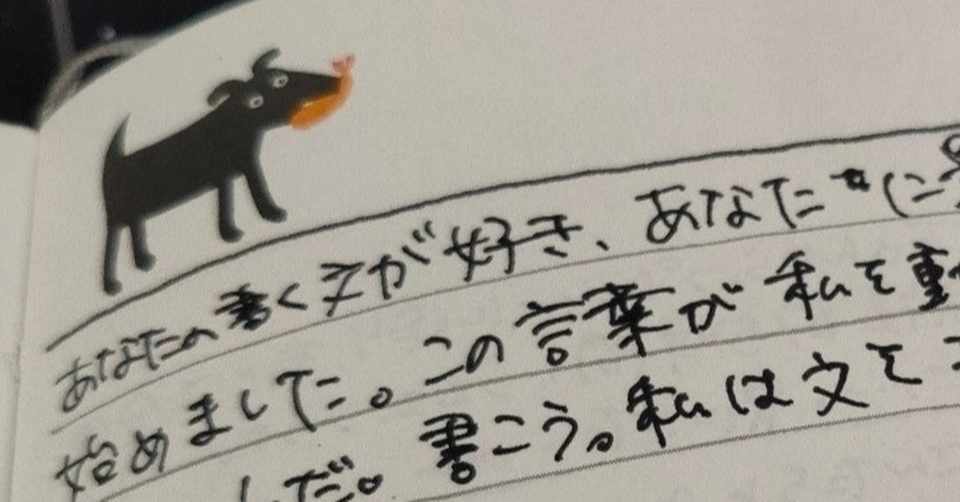 あなたの書く文が好き、あなた
始めました。この言葉が私を
だ。書こう。私は文を